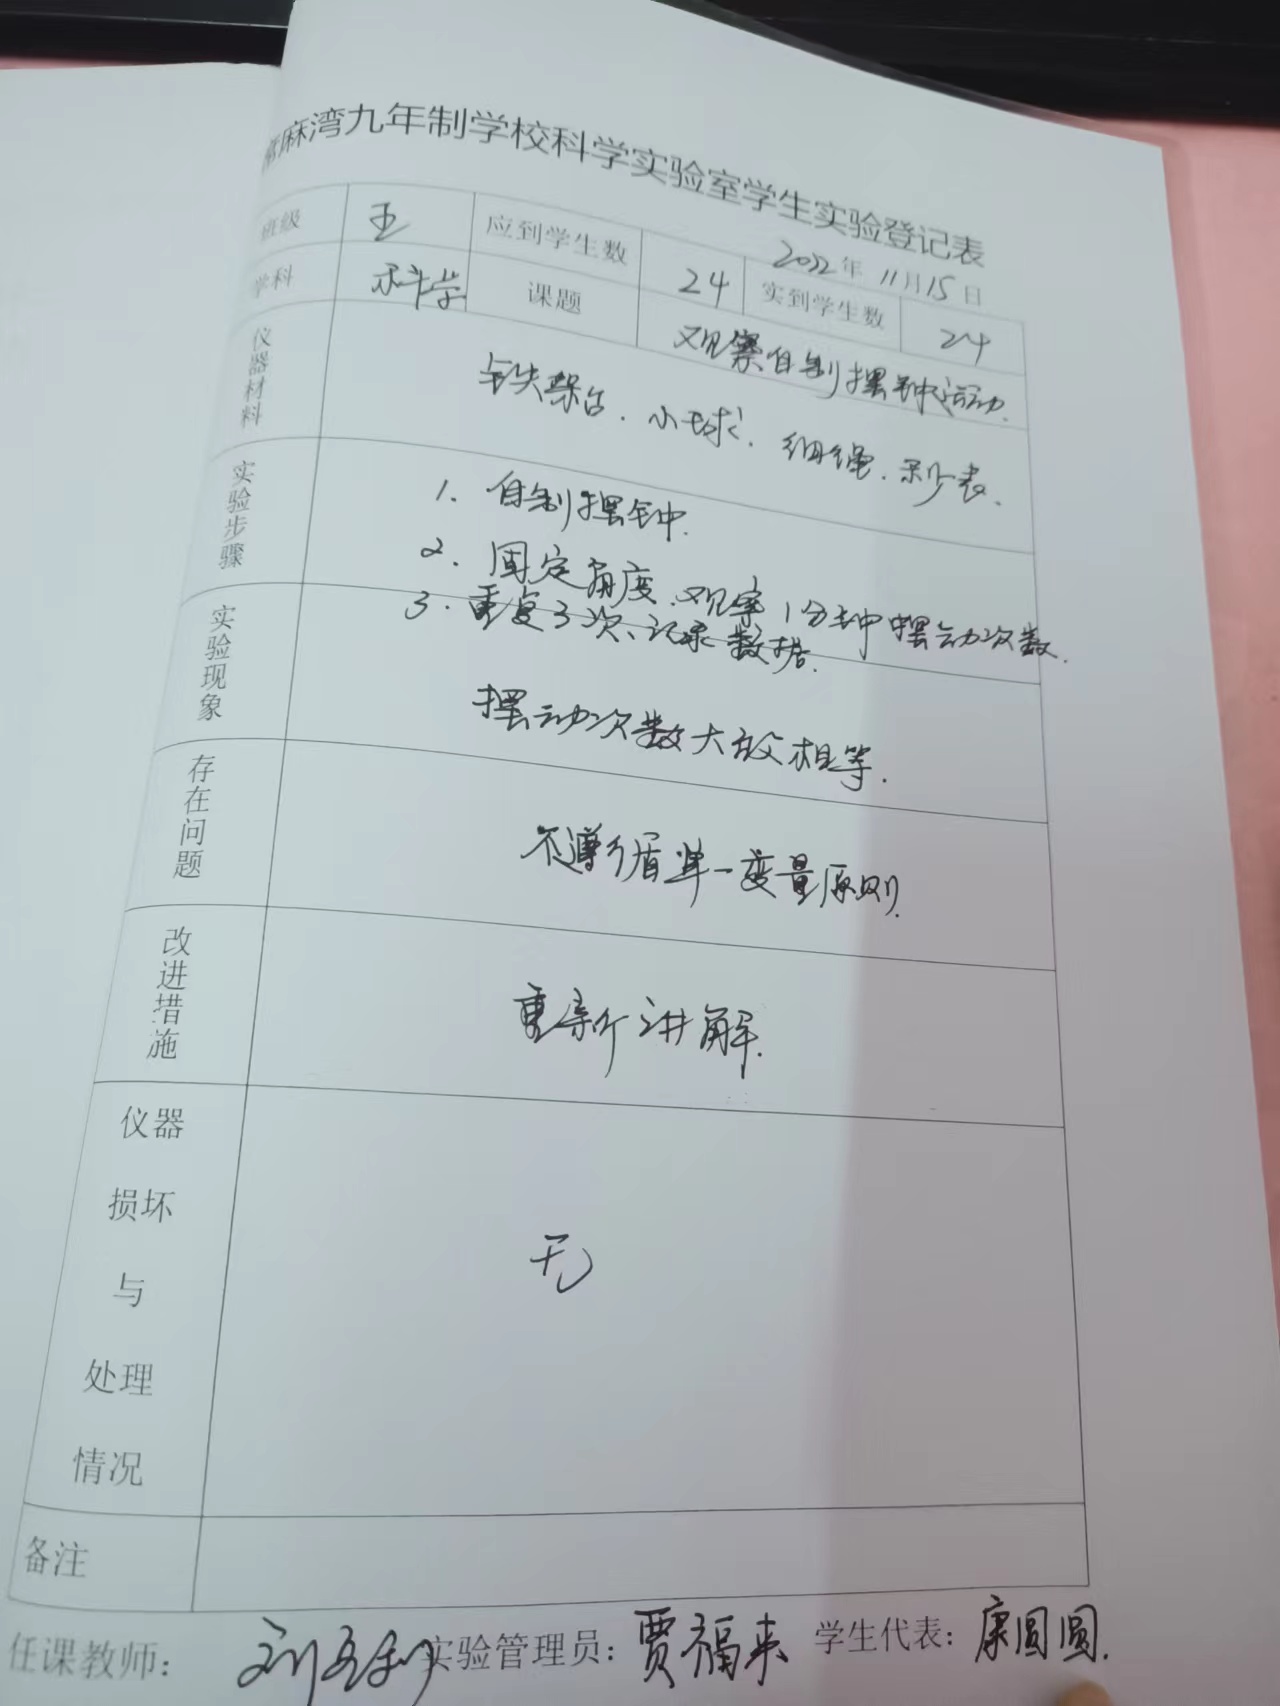 麻湾九年制学校科学实验室学生实验登记表
2022年11月15日
班级 五 应到学生数 24 实到学生数 24
学科 科学 课题 观察自制摆钟运动.
仪器材料 铁架台. 小球. 细绳. 秒表.
实验步骤 1. 自制摆钟.
2. 固定角度. 观察1分钟摆动次数.
3. 重复3次、记录数据.
实验现象 摆动次数大致相等.
存在问题 不遵循单一变量原则.
改进措施 重新讲解.
仪器损坏与处理情况 无
备注
任课教师: 刘 实验管理员: 贾福来 学生代表: 康圆圆.